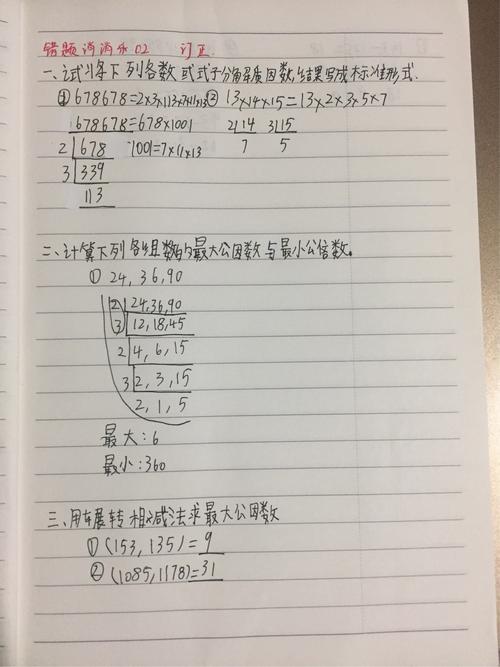 错题消消乐02 订正
一、试将下列各数或式子分解质因数,结果写成标准形式.
①678678=2×3×113×7×11×13 ②13×14×15=13×2×3×5×7
678678=678×1001 2|14 3|15
2|678 1001=7×11×13 7 5
3|339
113
二、计算下列各组数的最大公因数与最小公倍数。
①24,36,90
2|24,36,90
3|12,18,45
2|4,6,15
3|2,3,15
2,1,5
最大:6
最小:360
三、用辗转相减法求最大公因数
①(153,135)=9
②(1085,1178)=31